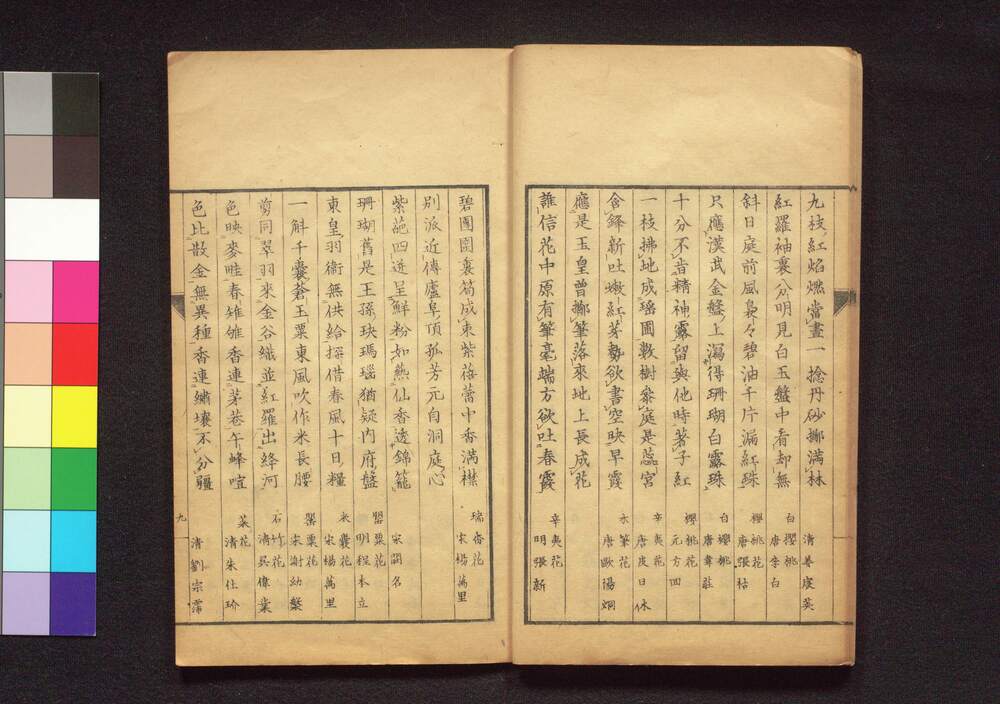 九枝紅焰燃當晝一捻丹砂擲滿林
清 姜虔英
紅羅袖裏分明見白玉盤中看却無
白櫻桃
唐 李白
斜日庭前風裊々碧油千片漏紅珠
櫻桃花
唐 張祜
只應漢武金盤上瀉得珊瑚白露珠
白櫻桃
唐 韋莊
十分不肯精神露留與他時著子紅
櫻桃花
元 方回
一枝拂地成瑶圃數樹參庭是蕊宮
辛夷花
唐 皮日休
含鋒新吐嫩紅芽勢欲書空映早霞
木筆花
唐 歐陽炯
應是玉皇曾擲筆落來地上長成花
誰信花中原有筆毫端方欲吐春霞
辛夷花
明 張新
碧團團裏筍成束紫蓓蕾中香滿襟
瑞香花
宋 楊萬里
別派近傳廬阜頂孤芳元自洞庭心
紫葩四迸呈鮮粉如爇仙香透錦籠
宋 闕名
珊瑚舊是王孫玦瑪瑙猶疑内府盤
罌粟花
明 程本立
東皇羽衛無供給探借春風十日糧
米囊花
宋 楊萬里
一斛千囊蒼玉粟東風吹作米長腰
罌粟花
宋 謝幼槃
剪同翠羽來金谷織並紅羅出絳河
石竹花
清 吳偉業
色映麥畦春雉雊香連茅巷午蜂喧
菜花
清 朱仕玠
色比散金無異種香連繡壤不分疆
清 劉宗霈
九